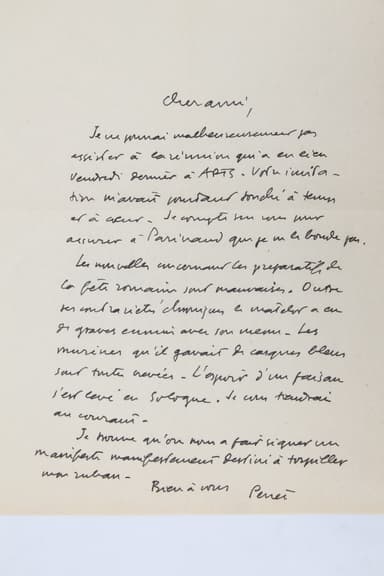 Cher ami,
Je ne pourrai malheureusement pas
assister à la réunion qui a eu lieu
vendredi dernier à ARTS. Votre invita-
tion m'avait pourtant touché à temps
et à cœur. Je compte sur vous pour
assurer à Parinaud que je ne le boude pas.
Les nouvelles concernant les préparatifs de
la fête romain sont mauvaises. Outre
ses contrariétés chroniques le matelot a eu
de graves ennuis avec son menu. Les
murènes qu'il gavait de casques bleus
sont toutes crevées. L'espoir d'un faisan
s'est levé en Sologne. Je vous tiendrai
au courant.
Je trouve qu'on nous a fait signer un
manifeste manifestement destiné à torpiller
mon ruban.
Bien à vous